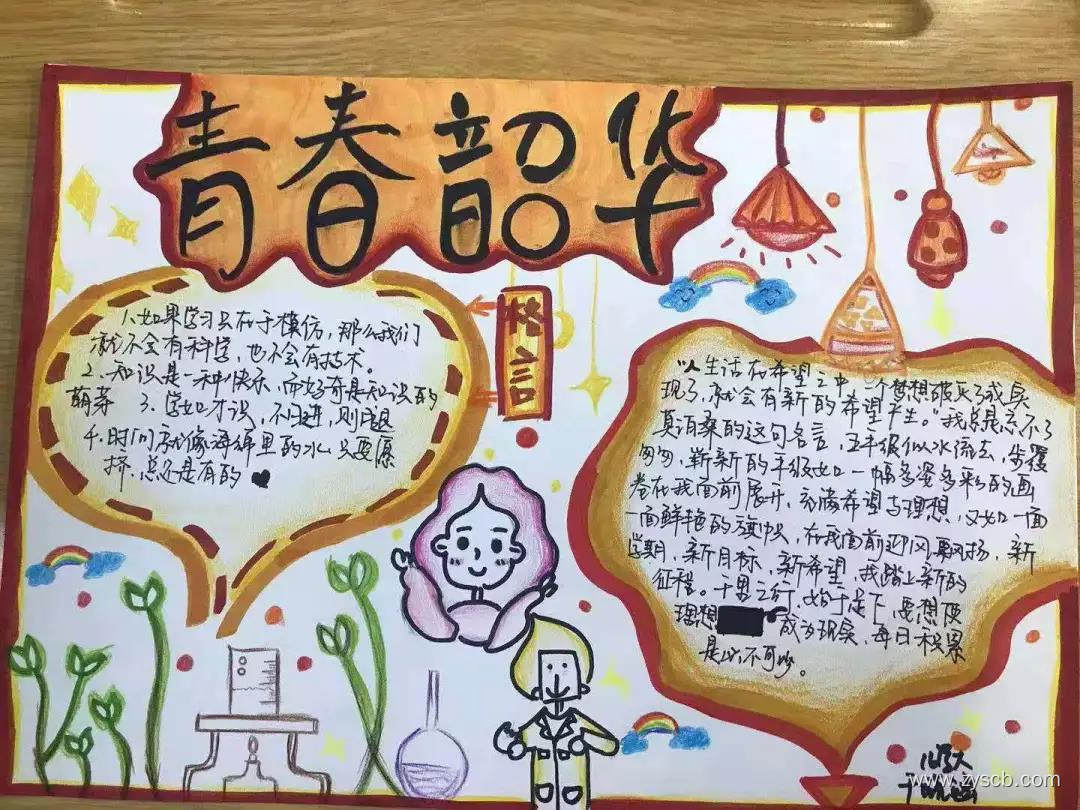 青春韶华
格言
1、如果学习只在于模仿，那么我们
就不会有科学，也不会有技术。
2、知识是一种快乐，而好奇是知识的
萌芽 3、学如才识，不日进，则日退
4、时间就像海绵里的水 只要愿
挤，总还是有的
"人生活在希望之中，一个梦想破灭了或实
现了，就会有新的希望产生。"我总是忘不了
莫泊桑的这句名言，
匆匆，崭新的年级如一幅多姿多彩的画
卷在我面前展开，充满希望与理想，又如一面
一面鲜艳的旗帜，在我面前迎风飘扬，新
学期，新目标，新希望，我踏上新的
征程。千里之行，始于足下，要想使
理想 成为现实，每日积累
是必不可少。
www.zyscb.com